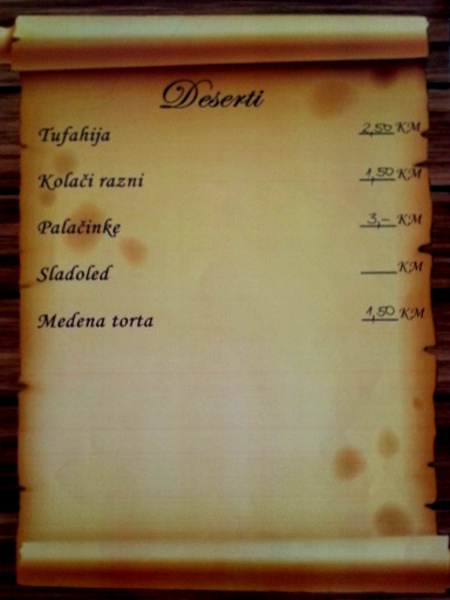 Deserti
Tufahija 2,50 KM
Kolači razni 1,50 KM
Palačinke 3,- KM
Sladoled ____ KM
Medena torta 1,50 KM